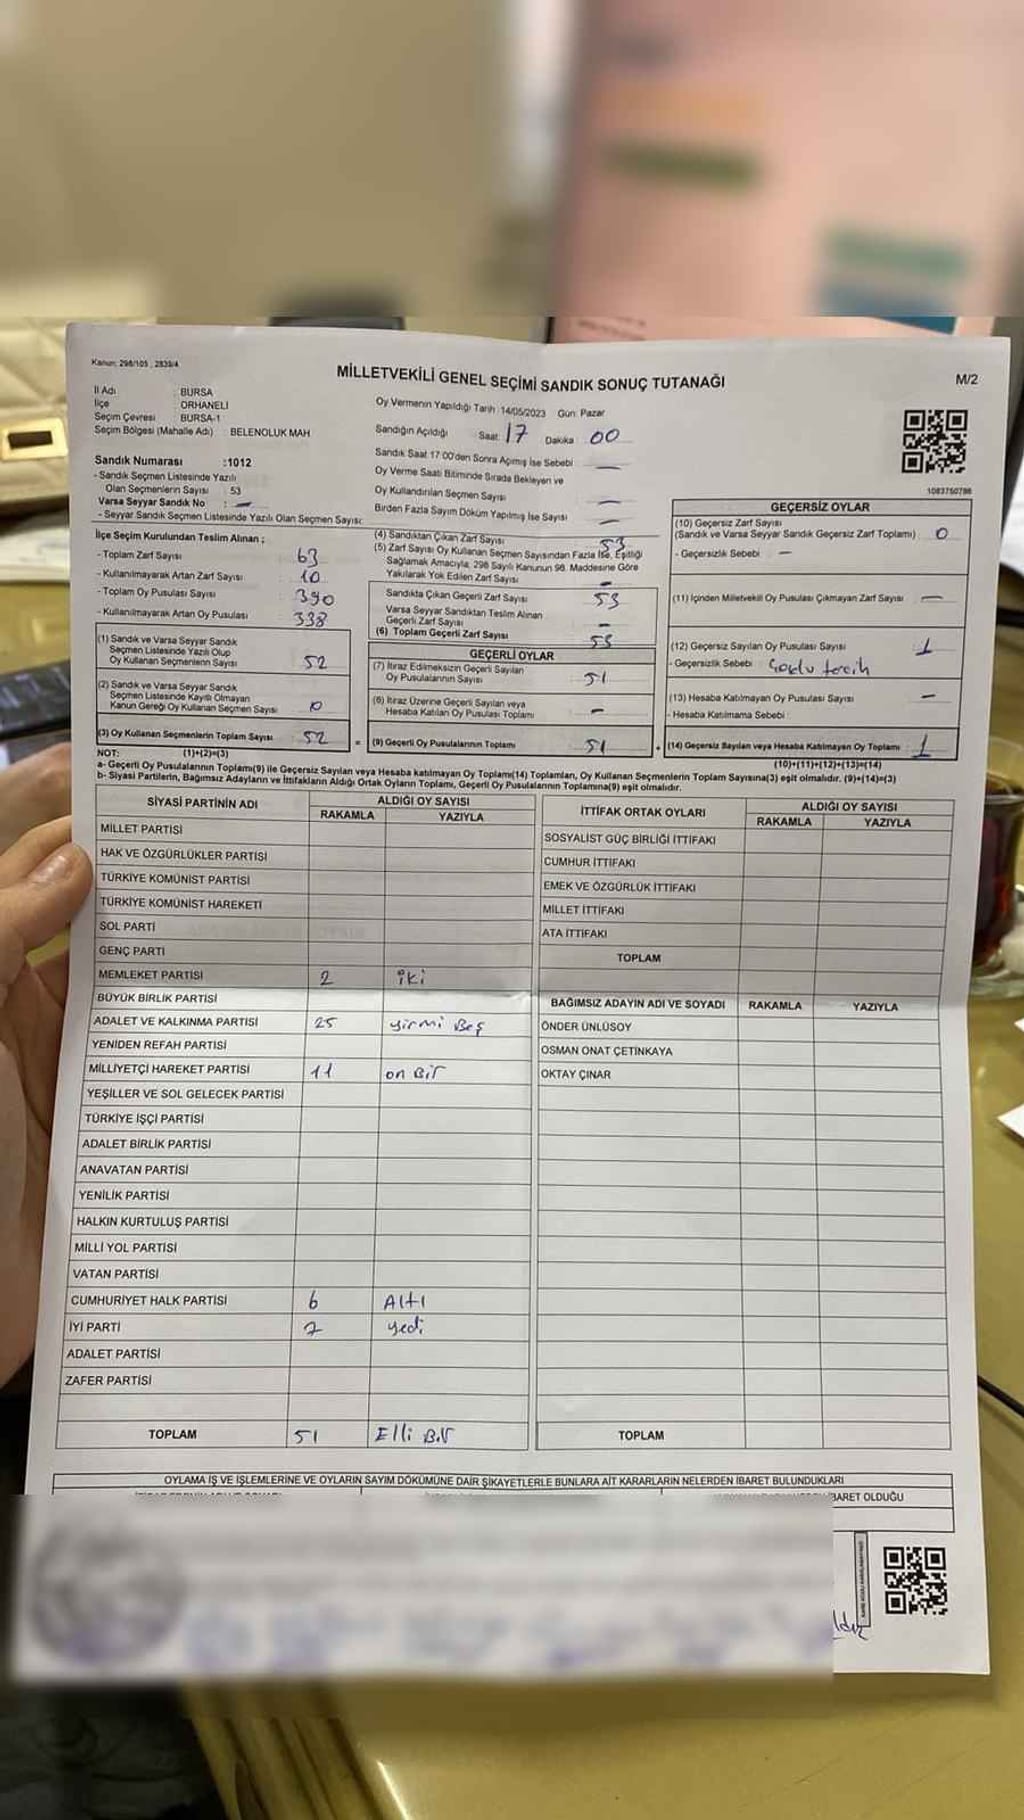 Kanun: 298/105 , 2839/4
MİLLETVEKİLİ GENEL SEÇİMİ SANDIK SONUÇ TUTANAĞI
M/2
İl Adı : BURSA
İlçe ORHANELİ
Seçim Çevresi : BURSA-1
Seçim Bölgesi (Mahalle Adı) : BELENOLUK MAH
Sandık Numarası :1012
- Sandık Seçmen Listesinde Yazılı
Olan Seçmenlerin Sayısı : 53
Varsa Seyyar Sandık No : —
- Seyyar Sandık Seçmen Listesinde Yazılı Olan Seçmen Sayısı:
Oy Vermenin Yapıldığı Tarih :14/05/2023 Gün: Pazar
Sandığın Açıldığı Saat: 17 Dakika 00
Sandık Saat 17:00'den Sonra Açımış İse Sebebi —
Oy Verme Saati Bitiminde Sırada Bekleyen ve
Oy Kullandırılan Seçmen Sayısı —
Birden Fazla Sayım Döküm Yapılmış İse Sayısı —
1083750786
İlçe Seçim Kurulundan Teslim Alınan ;
- Toplam Zarf Sayısı 63
- Kullanılmayarak Artan Zarf Sayısı 10
- Toplam Oy Pusulası Sayısı 390
- Kullanılmayarak Artan Oy Pusulası 338
(1) Sandık ve Varsa Seyyar Sandık
Seçmen Listesinde Yazılı Olup
Oy Kullanan Seçmenlerin Sayısı 52
(2) Sandık ve Varsa Seyyar Sandık
Seçmen Listesinde Kayıtlı Olmayan
Kanun Gereği Oy Kullanan Seçmen Sayısı 0
(3) Oy Kullanan Seçmenlerin Toplam Sayısı 52 =
(4) Sandıktan Çıkan Zarf Sayısı 53
(5) Zarf Sayısı Oy Kullanan Seçmen Sayısından Fazla İse, Eşitliği
Sağlamak Amacıyla; 298 Sayılı Kanunun 98. Maddesine Göre
Yakılarak Yok Edilen Zarf Sayısı —
Sandıkta Çıkan Geçerli Zarf Sayısı 53
Varsa Seyyar Sandıktan Teslim Alınan
Geçerli Zarf Sayısı —
(6) Toplam Geçerli Zarf Sayısı 53
GEÇERLİ OYLAR
(7) İtiraz Edilmeksizin Geçerli Sayılan
Oy Pusulalarının Sayısı 51
(8) İtiraz Üzerine Geçerli Sayılan veya
Hesaba Katılan Oy Pusulası Toplamı —
(9) Geçerli Oy Pusulalarının Toplamı 51 +
GEÇERSİZ OYLAR
(10) Geçersiz Zarf Sayısı
(Sandık ve Varsa Seyyar Sandık Geçersiz Zarf Toplamı) 0
- Geçersizlik Sebebi —
(11) İçinden Milletvekili Oy Pusulası Çıkmayan Zarf Sayısı —
(12) Geçersiz Sayılan Oy Pusulası Sayısı 1
- Geçersizlik Sebebi Çoklu tercih
(13) Hesaba Katılmayan Oy Pusulası Sayısı —
- Hesaba Katılmama Sebebi :
(14) Geçersiz Sayılan veya Hesaba Katılmayan Oy Toplamı 1
NOT: (1)+(2)=(3)
(10)+(11)+(12)+(13)=(14)
a- Geçerli Oy Pusulalarının Toplamı(9) ile Geçersiz Sayılan veya Hesaba katılmayan Oy Toplamı(14) Toplamları, Oy Kullanan Seçmenlerin Toplam Sayısına(3) eşit olmalıdır. (9)+(14)=(3)
b- Siyasi Partilerin, Bağımsız Adayların ve İttifakların Aldığı Ortak Oyların Toplamı, Geçerli Oy Pusulalarının Toplamına(9) eşit olmalıdır.
SİYASİ PARTİNİN ADI ALDIĞI OY SAYISI
RAKAMLA YAZIYLA
MİLLET PARTİSİ
HAK VE ÖZGÜRLÜKLER PARTİSİ
TÜRKİYE KOMÜNİST PARTİSİ
TÜRKİYE KOMÜNİST HAREKETİ
SOL PARTİ
GENÇ PARTİ
MEMLEKET PARTİSİ 2 iki
BÜYÜK BİRLİK PARTİSİ
ADALET VE KALKINMA PARTİSİ 25 yirmi Beş
YENİDEN REFAH PARTİSİ
MİLLİYETÇİ HAREKET PARTİSİ 11 on Bir
YEŞİLLER VE SOL GELECEK PARTİSİ
TÜRKİYE İŞÇİ PARTİSİ
ADALET BİRLİK PARTİSİ
ANAVATAN PARTİSİ
YENİLİK PARTİSİ
HALKIN KURTULUŞ PARTİSİ
MİLLİ YOL PARTİSİ
VATAN PARTİSİ
CUMHURİYET HALK PARTİSİ 6 Altı
İYİ PARTİ 7 yedi
ADALET PARTİSİ
ZAFER PARTİSİ
TOPLAM 51 Elli Bir
İTTİFAK ORTAK OYLARI ALDIĞI OY SAYISI
RAKAMLA YAZIYLA
SOSYALİST GÜÇ BİRLİĞİ İTTİFAKI
CUMHUR İTTİFAKI
EMEK VE ÖZGÜRLÜK İTTİFAKI
MİLLET İTTİFAKI
ATA İTTİFAKI
TOPLAM
BAĞIMSIZ ADAYIN ADI VE SOYADI RAKAMLA YAZIYLA
ÖNDER ÜNLÜSOY
OSMAN ONAT ÇETİNKAYA
OKTAY ÇINAR
TOPLAM
OYLAMA İŞ VE İŞLEMLERİNE VE OYLARIN SAYIM DÖKÜMÜNE DAİR ŞİKAYETLERLE BUNLARA AİT KARARLARIN NELERDEN İBARET BULUNDUKLARI
İBARET OLDUĞU